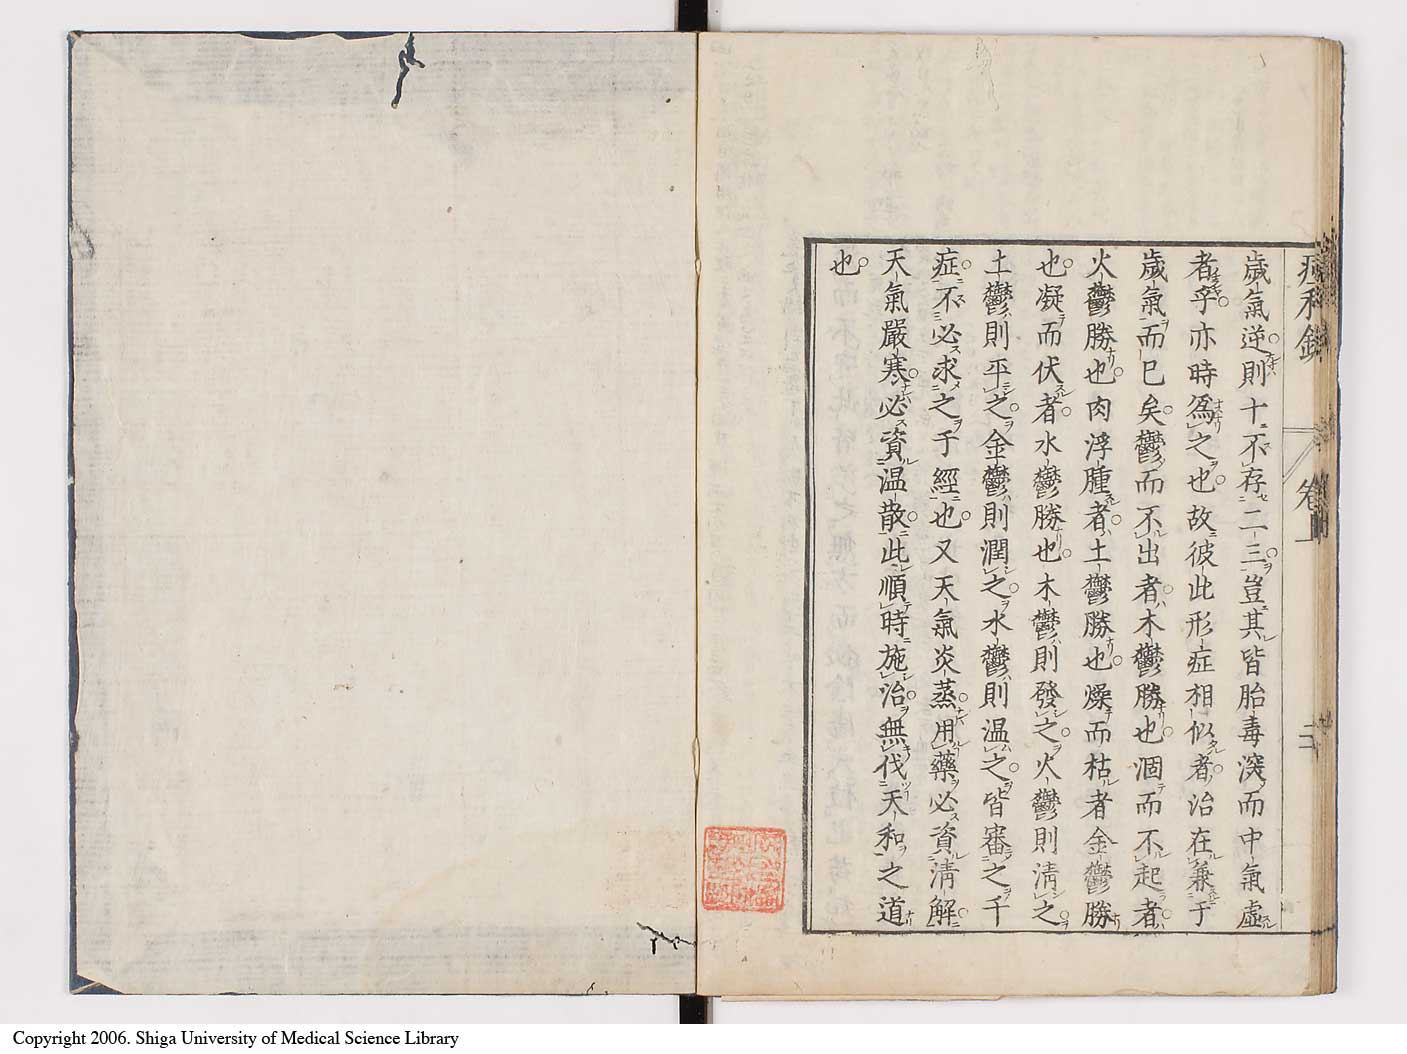 歲氣逆則十不存二三豈其皆胎毒深而中氣虛
者乎亦時爲之也故彼此形症相似者治在兼于
歲氣而已矣鬱而不出者木鬱勝也涸而不起者
火鬱勝也肉浮腫者土鬱勝也燥而枯者金鬱勝
也凝而伏者水鬱勝也木鬱則發之火鬱則淸之
土鬱則平之金鬱則潤之水鬱則温之皆審之千
症不必求之于經也又天氣炎蒸用藥必資淸解
天氣嚴寒必資温散此順時施治無伐天和之道
也
Copyright 2006. Shiga University of Medical Science Library